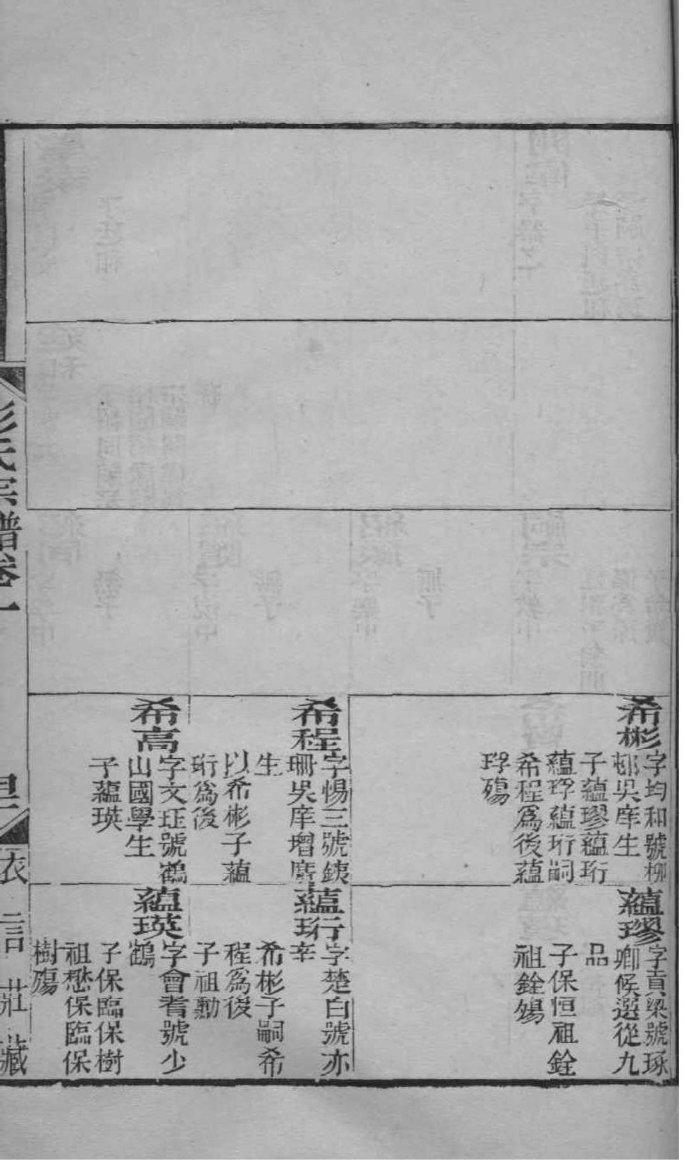 希彬
字均和號柳
邨吳庠生
子蘊璆蘊珩
蘊琈蘊珩嗣
希程爲後蘊
琈殤
希程
字惕三號鋏
珊吳庠增廣
生
以希彬子蘊
珩爲後
希高
字文珏號鶴
山國學生
子蘊瑛
蘊璆
字貢梁號琢
卿候選從九
品
子保恒祖銓
祖銓殤
蘊珩
字楚白號亦
辛
希彬子嗣希
程爲後
子祖勳
蘊瑛
字會耆號少
鶴
子保臨保樹
祖懋保臨保
樹殤
彭氏宗譜卷一
衣言莊藏